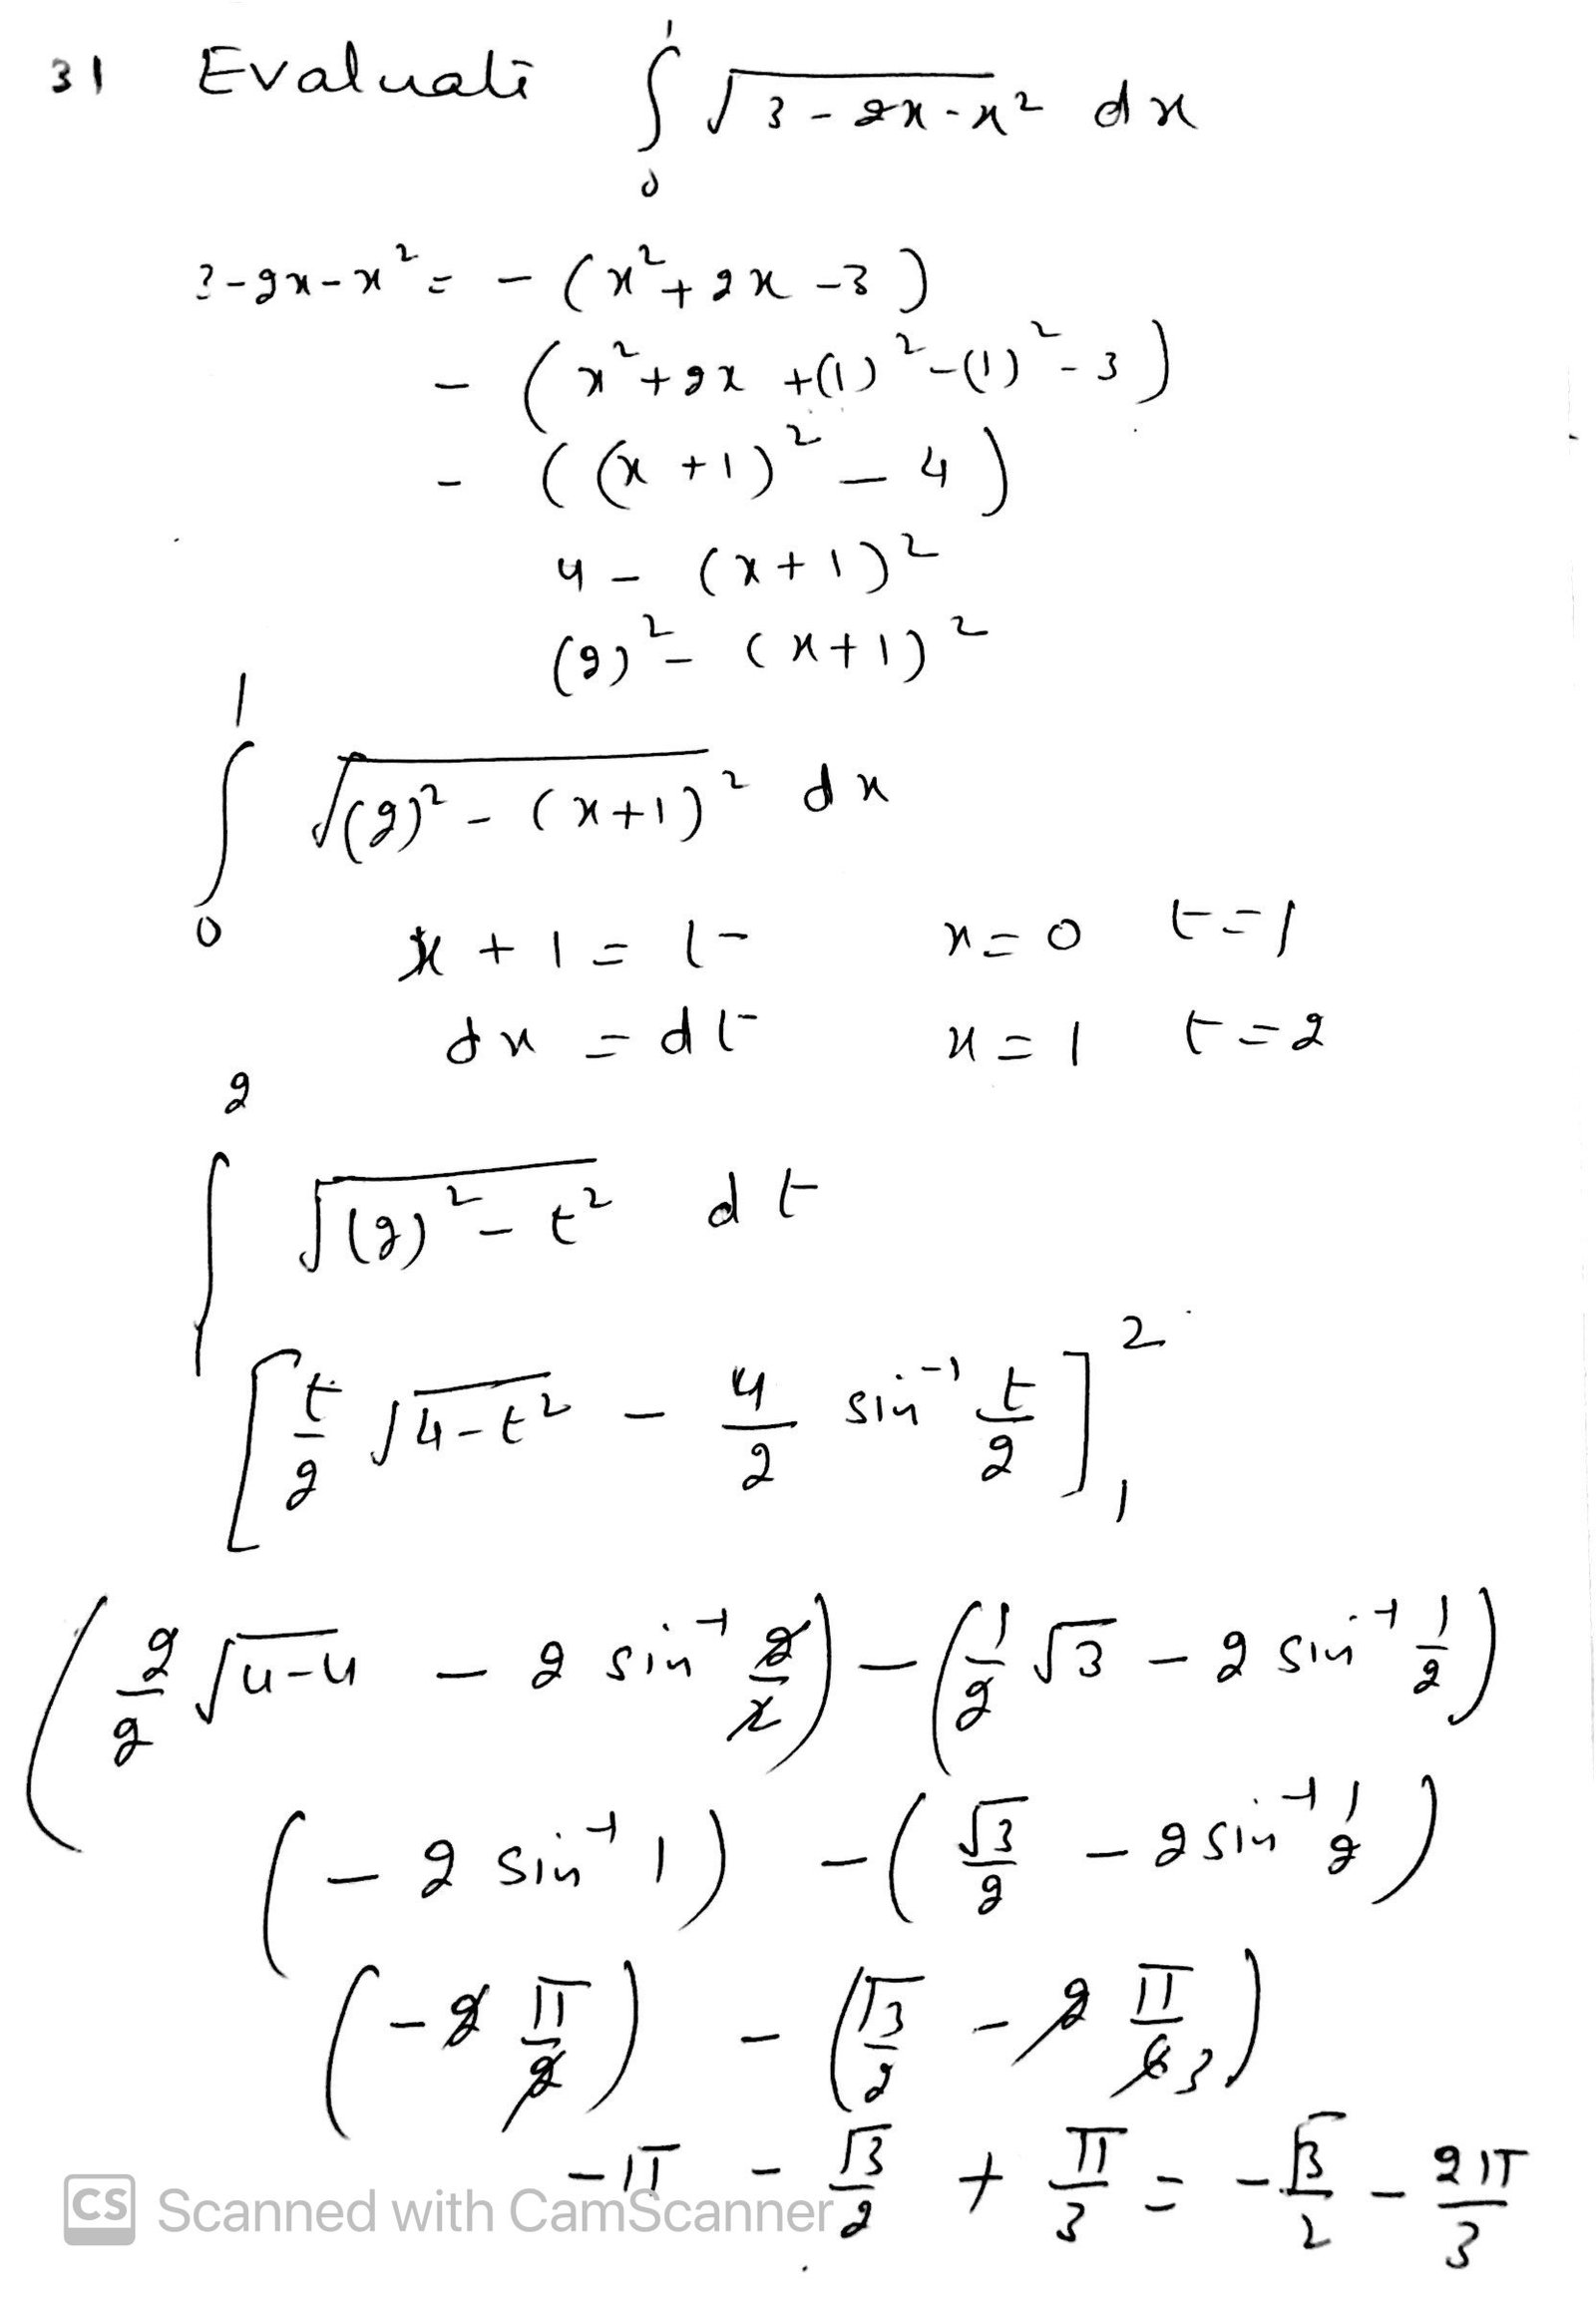 31 Evaluate ∫₀¹ √(3-2x-x²) dx
3-2x-x² = -(x²+2x-3)
-(x²+2x+(1)²-(1)²-3)
-((x+1)²-4)
4-(x+1)²
(2)²-(x+1)²
∫₀¹ √((2)²-(x+1)²) dx
x+1=t x=0 t=1
dx=dt x=1 t=2
∫₁² √((2)²-t²) dt
[t/2 √(4-t²) - 4/2 sin⁻¹ t/2]₁²
(2/2 √(4-4) - 2 sin⁻¹ 2/2) - (1/2 √3 - 2 sin⁻¹ 1/2)
(-2 sin⁻¹ 1) - (√3/2 - 2 sin⁻¹ 1/2)
(-2 π/2) - (√3/2 - 2 π/6 3)
-π - √3/2 + π/3 = -√3/2 - 2π/3
CS Scanned with CamScanner